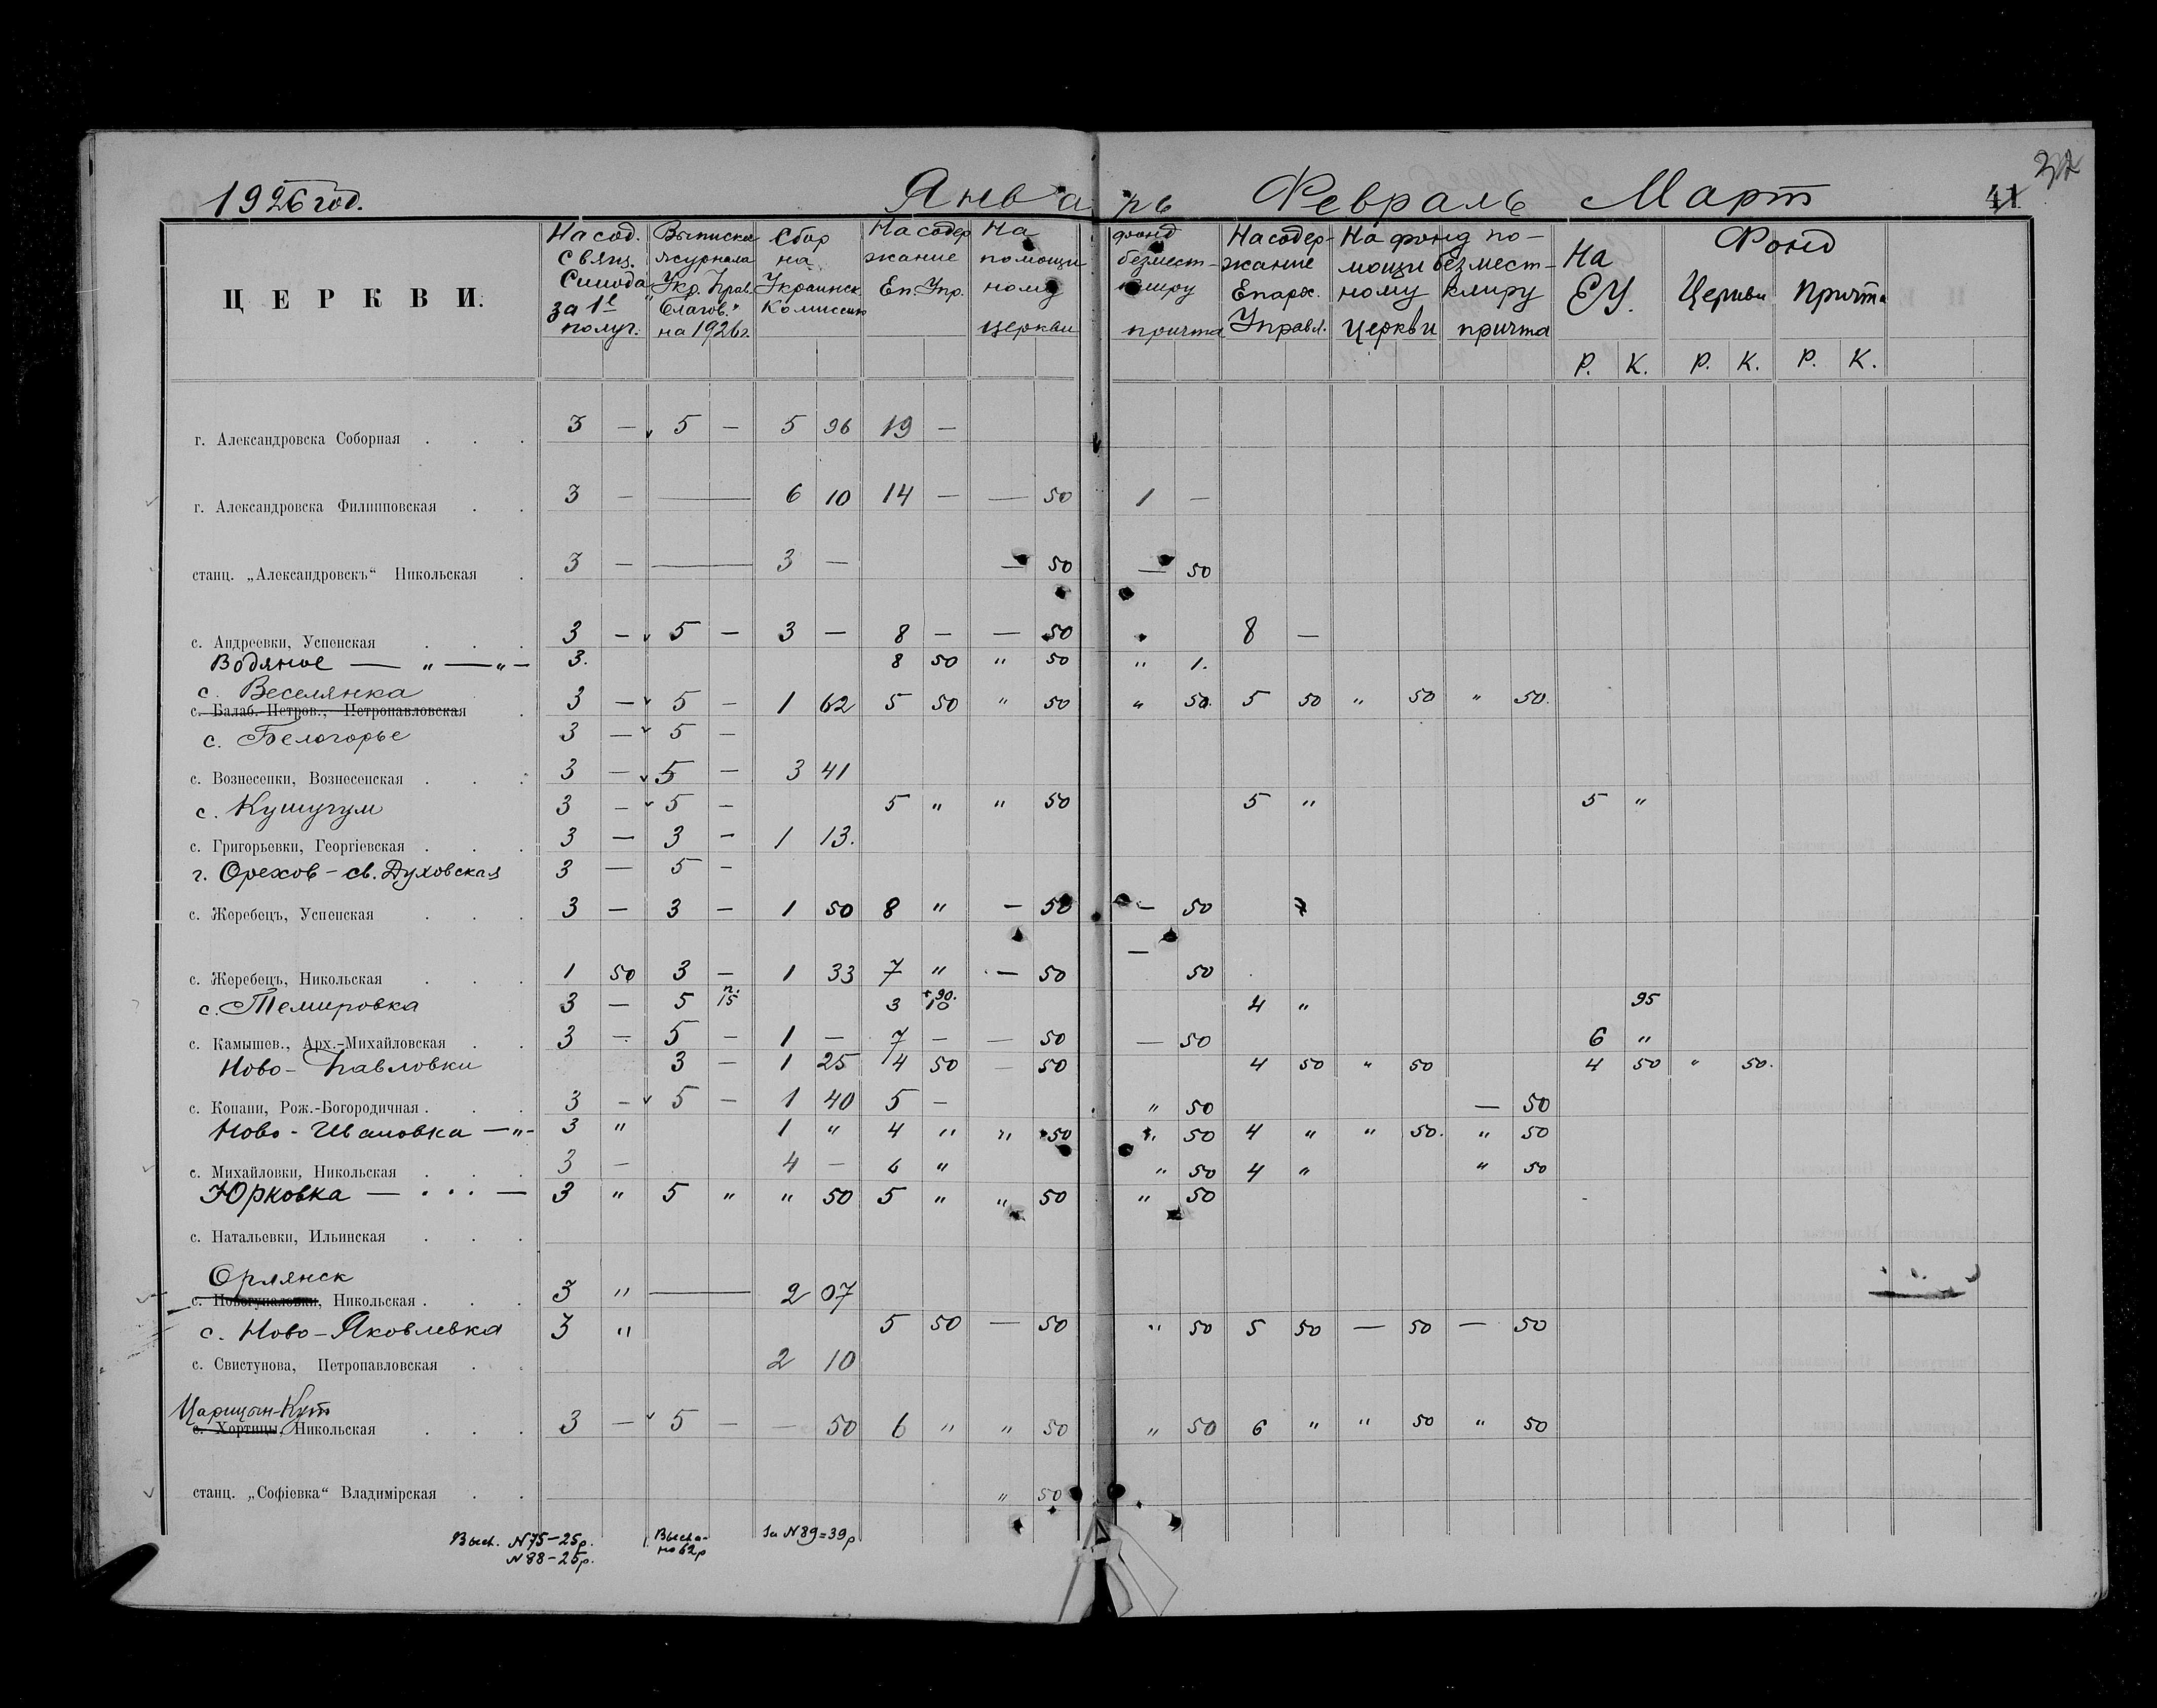 1926 год. Январь Февраль Март 41 32
ЦЕРКВИ.
На сод. Свящ. Синода за 1е полуг.
Выписка журнала "Укр. Прав. Благов." на 1926 г.
Сбор на Украинск. Комиссию
На содержание Еп. Упр.
На фонд помощи безместному клиру
церкви причта
На содержание Епарх. Управл.
На фонд помощи безместному клиру
церкви причта
На ЕУ. Фонд Церкви Причта
Р. К. Р. К. Р. К.
г. Александровска Соборная . . . 3 — v 5 — 5 96 19 —
г. Александровска Филипповская . . 3 — — 6 10 14 — — 50 1 —
станц. „Александровскъ“ Никольская . 3 — — 3 — — 50 — 50
с. Андреевки, Успенская . . . 3 — v 5 — 3 — 8 — — 50 8 —
Водяное — „ — „ — 3. 8 50 " 50 " 1.
с. Веселянка
с. Балаб.-Петров., Петропавловская . 3 — v 5 — 1 62 5 50 " 50 " 50. 5 50 " 50 " 50.
с. Белогорье 3 — v 5 —
с. Вознесенки, Вознесенская . . . 3 — v 5 — 3 41
с. Кушугум 3 — v 5 — 5 " " 50 5 " 5 "
с. Григорьевки, Георгіевская . . . 3 — 3 — 1 13.
г. Орехов — св. Духовская 3 — 5 —
с. Жеребецъ, Успенская . . . 3 — 3 — 1 50 8 " — 50 — 50
с. Жеребецъ, Никольская . . . 1 50 3 — 1 33 7 " — 50 — 50
с. Темировка 3 — 5 п. 15 3 +90. 10 4 " 95
с. Камышев., Арх.-Михайловская . . 3 — 5 — 1 — 7 — — 50 — 50 6 "
Ново-Павловки 3 — 1 25 4 50 — 50 4 50 " 50 4 50 " 50.
с. Копани, Рож.-Богородичная . . . 3 — v 5 — 1 40 5 — " 50 — 50
Ново-Ивановка — „ — 3 " 1 " 4 " " 50 " 50 4 " " 50. " 50
с. Михайловки, Никольская . . . 3 — 4 — 6 " " 50 4 " " 50
Юрковка — . . . — 3 " 5 " " 50 5 " " 50 " 50
с. Натальевки, Ильинская . . .
Орлянск
с. Новогупаловки, Никольская . . . 3 " — 2 07
с. Ново-Яковлевка 3 " 5 50 — 50 " 50 5 50 — 50 — 50
с. Свистунова, Петропавловская . . 2 10
Царицын-Кут
с. Хортицы, Никольская . . . 3 — v 5 — — 50 6 " " 50 " 50 6 " " 50 " 50
станц. „Софіевка“ Владимірская . . " 50
Высл. N 75 — 25 р.
N 88 — 25 р.
Выслано 62 р
За N 89 = 39 р